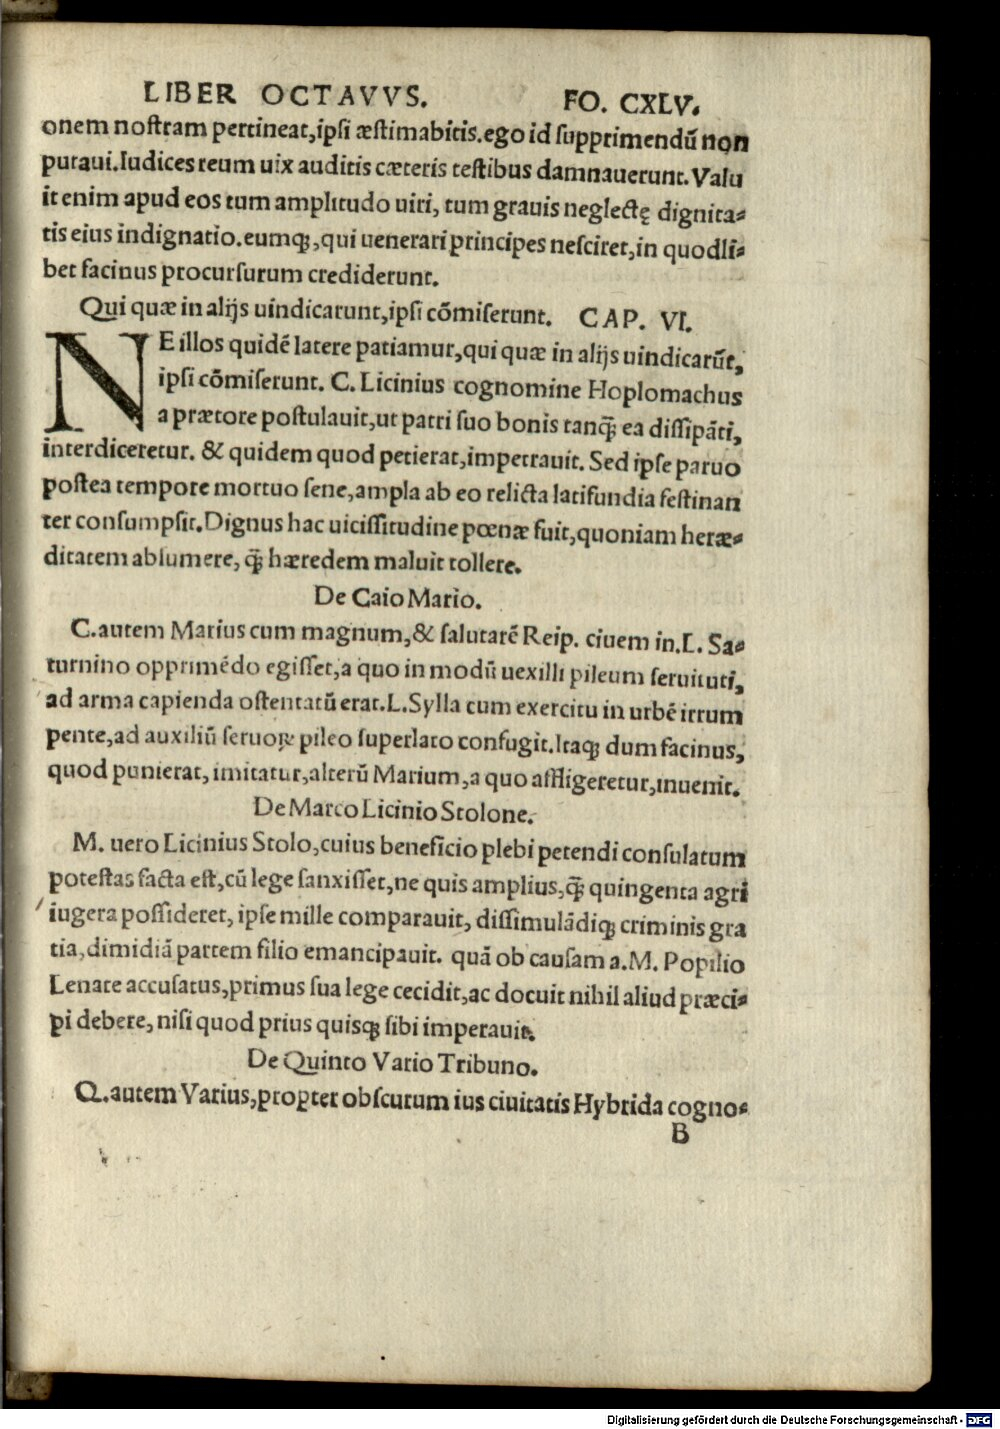 LIBER OCTAVVS. FO. CXLV.
onem noſtram pertineat,ipſi æſtimabitis.ego id ſupprimendū non
putaui.Iudices reum uix auditis cæteris teſtibus damnauerunt.Valu
it enim apud eos tum amplitudo uiri, tum grauis neglectę dignita⸗
tis eius indignatio.eumq́;,qui uenerari principes neſciret,in quodli⸗
bet facinus procurſurum crediderunt.
Qui quæ in alijs uindicarunt,ipſi cōmiſerunt. CAP. VI.
NE illos quidē latere patiamur,qui quæ in alijs uindicarūt,
ipſi cōmiſerunt. C. Licinius cognomine Hoplomachus
a prætore poſtulauit,ut patri ſuo bonis tanq̄ ea diſſipāti,
interdiceretur. & quidem quod petierat,impetrauit. Sed ipſe paruo
poſtea tempore mortuo ſene,ampla ab eo relicta latifundia feſtinan
ter conſumpſit.Dignus hac uiciſſitudine pœnæ fuit,quoniam heræ⸗
ditatem abſumere, q̄ hæredem maluit tollere.
De Caio Mario.
C.autem Marius cum magnum,& ſalutarē Reip. ciuem in.L. Sa⸗
turnino opprimēdo egiſſet,a quo in modū uexilli pileum ſeruituti,
ad arma capienda oſtentatū erat.L.Sylla cum exercitu in urbē irrum
pente,ad auxiliū ſeruoꝝ pileo ſuperlato confugit.Itaq; dum facinus,
quod punierat, imitatur,alterū Marium,a quo affligeretur,inuenit.
De Marco Licinio Stolone.
M. uero Licinius Stolo,cuius beneficio plebi petendi conſulatum
poteſtas facta eſt,cū lege ſanxiſſet,ne quis amplius,q̄ quingenta agri
iugera poſſideret, ipſe mille comparauit, diſſimulādiq; criminis gra
tia,dimidiā partem filio emancipauit. quā ob cauſam a.M. Popilio
Lenate accuſatus,primus ſua lege cecidit,ac docuit nihil aliud præci⸗
pi debere, niſi quod prius quisq; ſibi imperauit.
De Quinto Vario Tribuno.
Q.autem Varius,propter obſcurum ius ciuitatis Hybrida cogno⸗
B
Digitalisierung gefördert durch die Deutsche Forschungsgemeinschaft - DFG